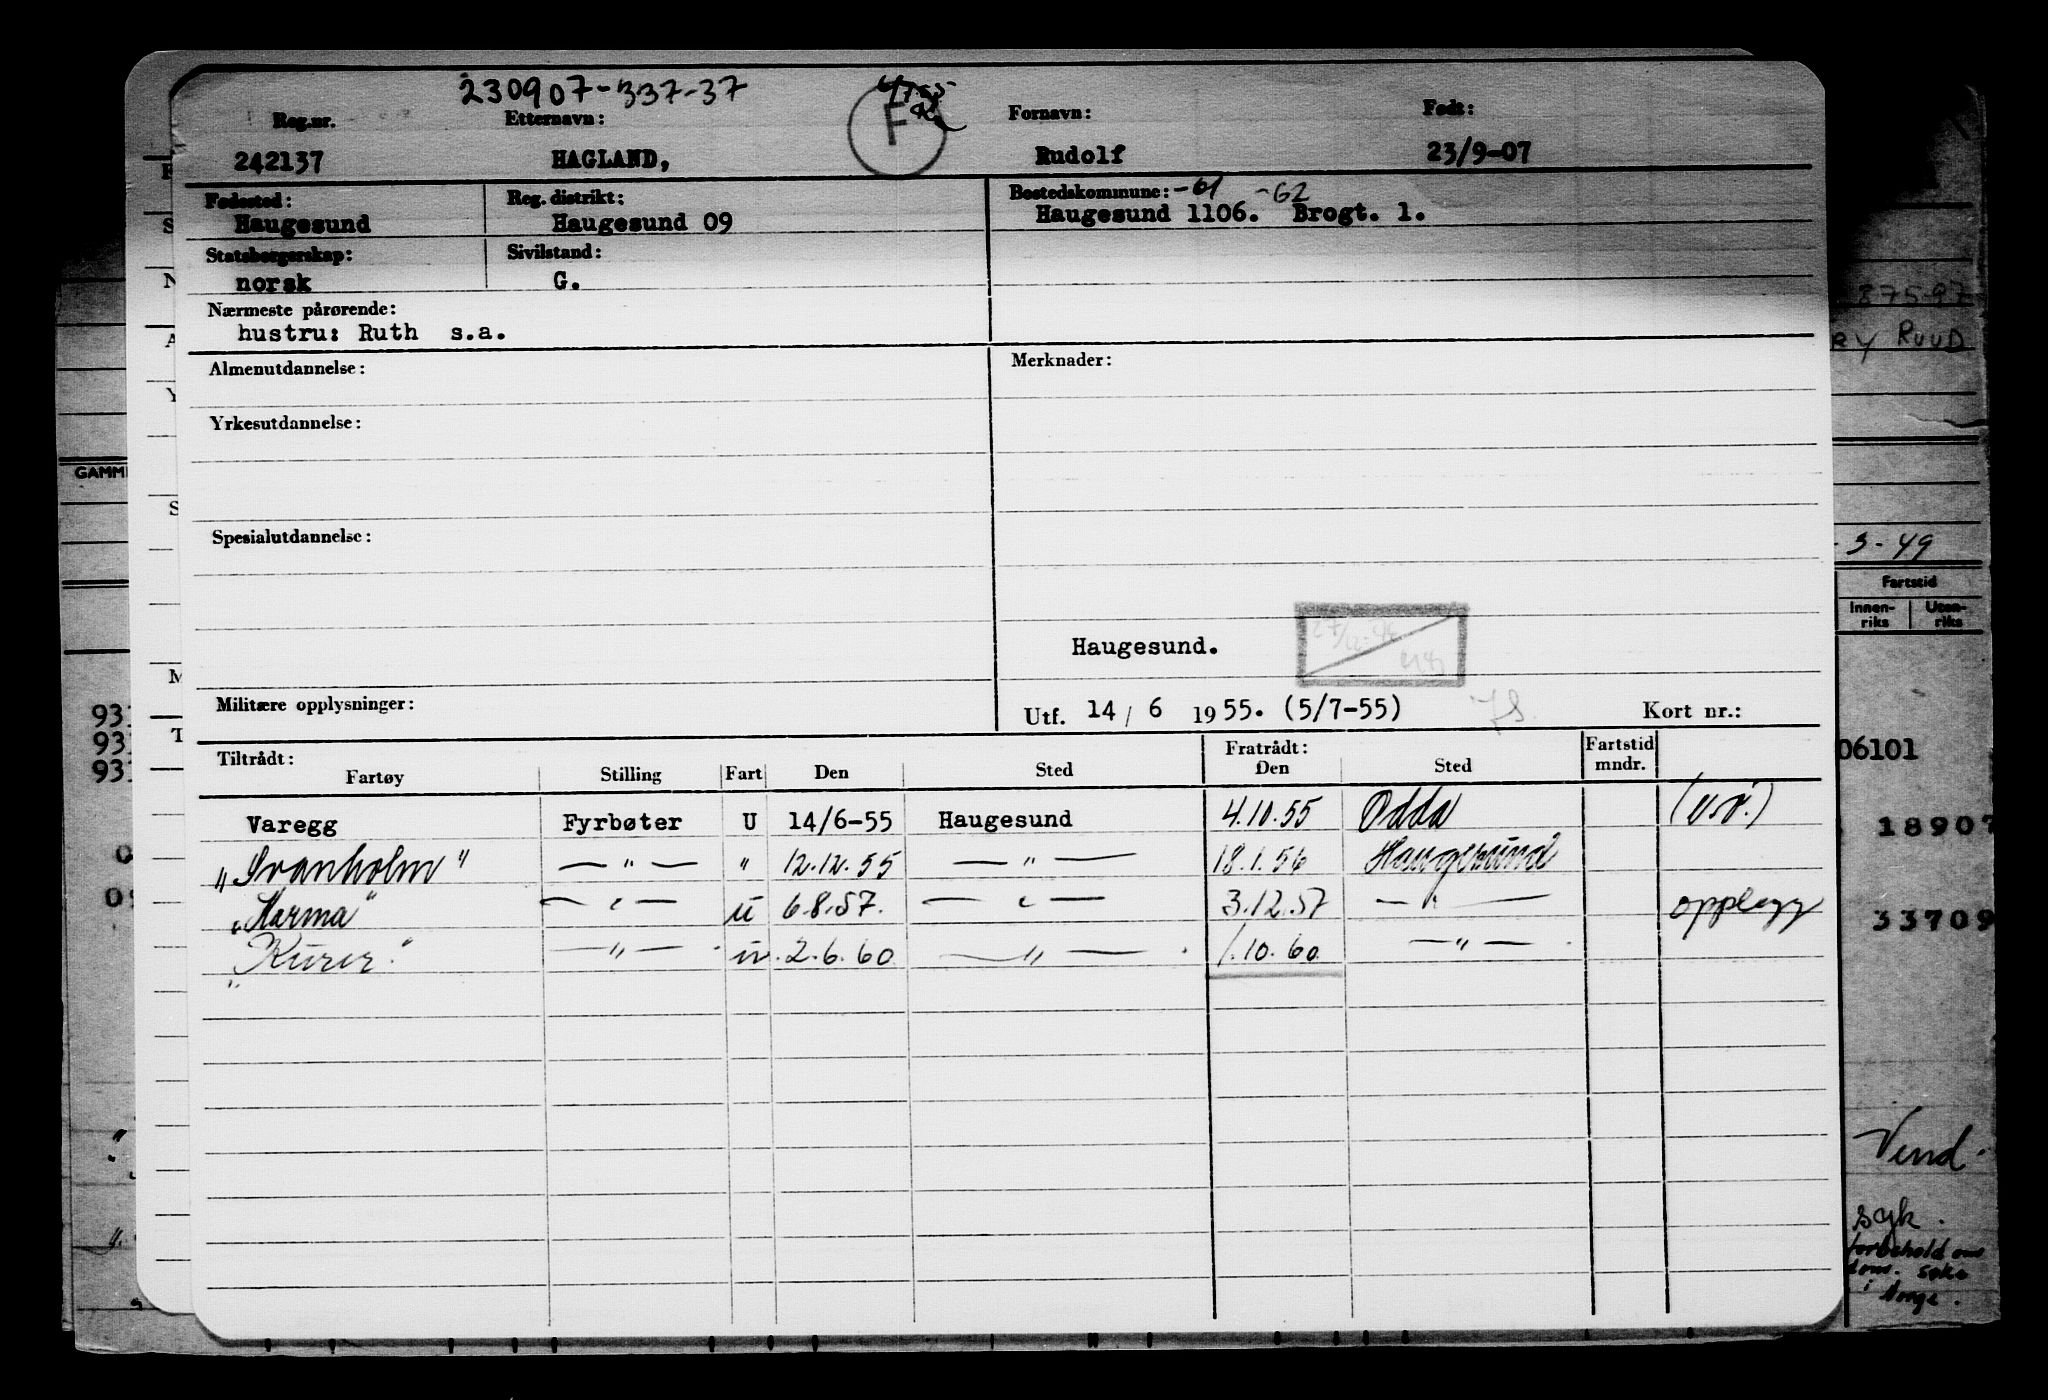 230907-337-37
Reg.nr. Etternavn: F Fornavn: Født:
242137 HAGLAND, Rudolf 23/9-07
Fødested: Reg. distrikt: Bostedskommune: -61 -62
Haugesund Haugesund 09 Haugesund 1106. Brogt. 1.
Statsborgerskap: Sivilstand:
norsk G.
Nærmeste pårørende:
hustru: Ruth s.a.
Almenutdannelse: Merknader:
Yrkesutdannelse:
Spesialutdannelse:
Haugesund.
Militære opplysninger: Utf. 14 / 6 1955. (5/7-55) Kort nr.:
Tiltrådt: Fratrådt: Fartstid
Fartøy Stilling Fart Den Sted Den Sted mndr.
Varegg Fyrbøter U 14/6-55 Haugesund 4.10.55 Odda
"Svanholm" — " — " 12.12.55 — " — 18.1.56 Haugesund
"Karma" — " — u 6.8.57. — " — 3.12.57 — " — opplegg
"Kurir" — " — 2.6.60 — " — 1.10.60 — " —
37597
RY RUUD
GAMM
-3-49
Fartstid
Innen-
riks
Uten-
riks
93
93
93
06101
18907
33709
Vend.
sgk.
forbehold om
søke
i Norge.